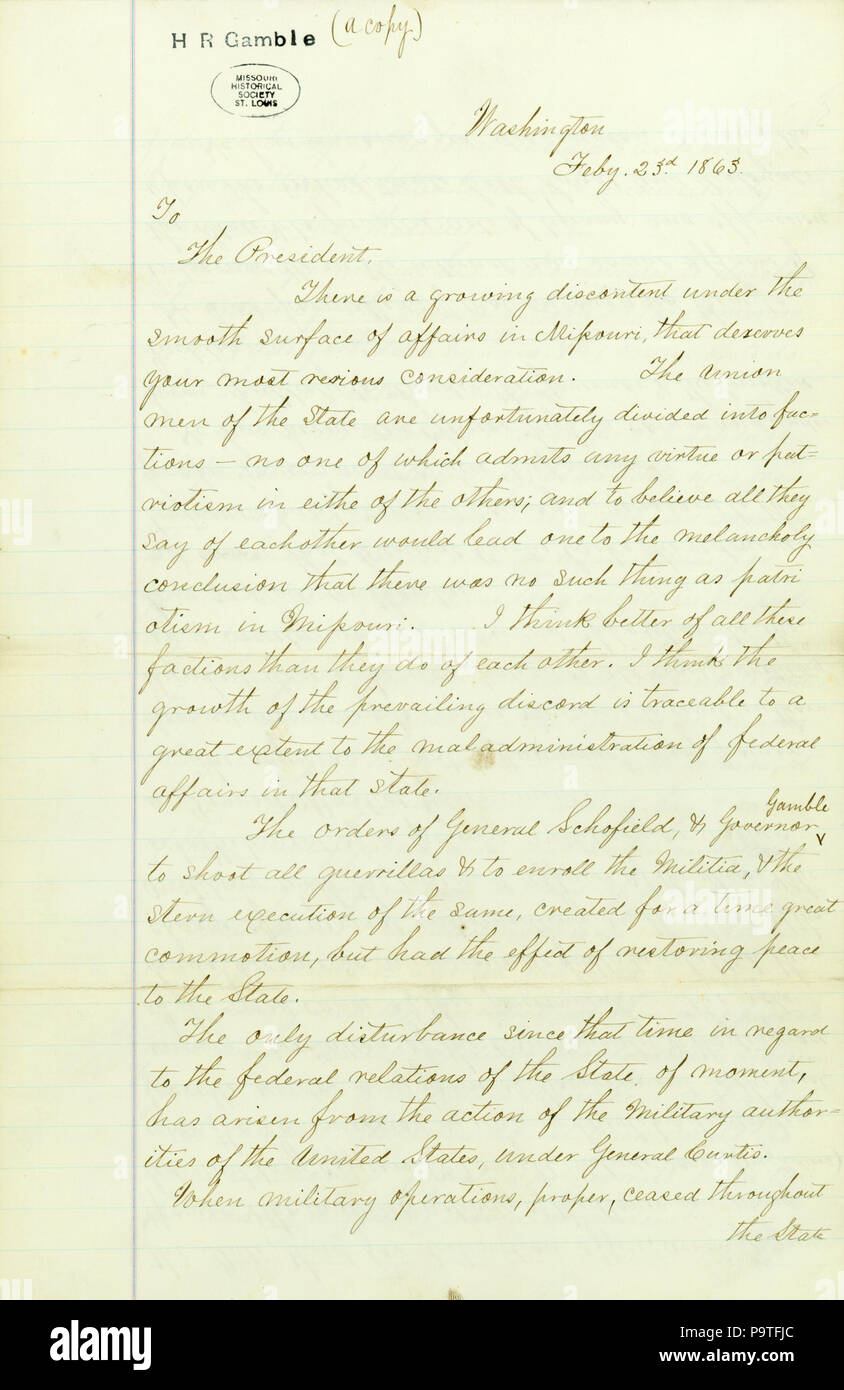 H R Gamble (a copy)
MISSOURI
HISTORICAL
SOCIETY
ST. LOUIS
Washington
Feby. 23d. 1863.
To
The President.
There is a growing discontent under the
smooth surface of affairs in Missouri, that deserves
your most serious consideration. The Union
men of the State are unfortunately divided into fac=
tions — no one of which admits any virtue or pat=
riotism in eithe of the others; and to believe all they
say of eachother would lead one to the melancholy
conclusion that there was no such thing as patri
otism in Missouri. I think better of all these
factions than they do of each other. I think the
growth of the prevailing discord is traceable to a
great extent to the maladministration of federal
affairs in that State.
Gamble
The orders of General Schofield, & Governor
to shoot all guerrillas & to enroll the Militia, & the
stern execution of the same, created for a time great
commotion, but had the effect of restoring peace
to the State.
The only disturbance since that time in regard
to the federal relations of the State, of moment,
has arisen from the action of the Military author=
ities of the United States, under General Curtis.
When military operations, proper, ceased throughout
the State
alamy
Image ID: P9TFJC
www.alamy.com